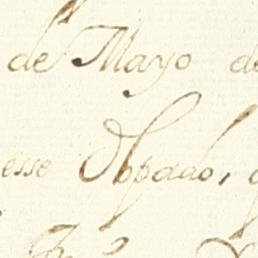 de Mayo de
esse Obpado,